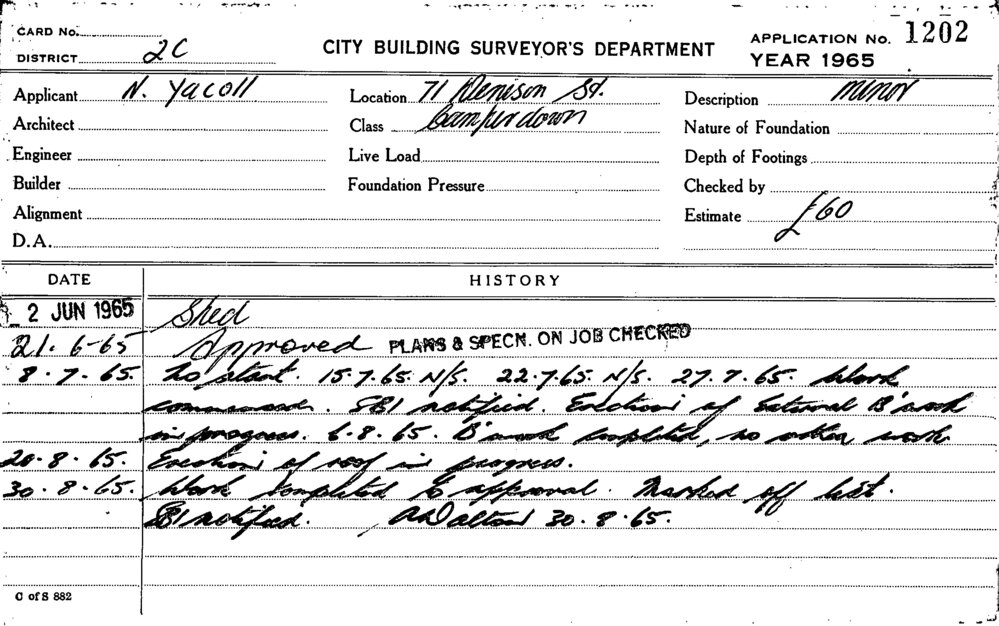 CARD No.
DISTRICT 2C
CITY BUILDING SURVEYOR'S DEPARTMENT
APPLICATION No. 1202
YEAR 1965
Applicant N. Yacoll
Location 71 Denison St.
Description minor
Architect
Class Camperdown
Nature of Foundation
Engineer
Live Load
Depth of Footings
Builder
Foundation Pressure
Checked by
Alignment
Estimate £60
D.A.
DATE HISTORY
2 JUN 1965 Shed
21.6-65 Approved PLANS & SPECN. ON JOB CHECKED
8.7.65. No start. 15.7.65. N/S. 22.7.65. N/S. 27.7.65. Work
commenced. SBI notified. Erection of External B'work
in progress. 6.8.65. B'work completed, no other work
20.8.65. Erection of roof in progress.
30.8.65. Work completed to approval. Marked off list.
SBI notified. ADalton 30.8.65.
C of S 882